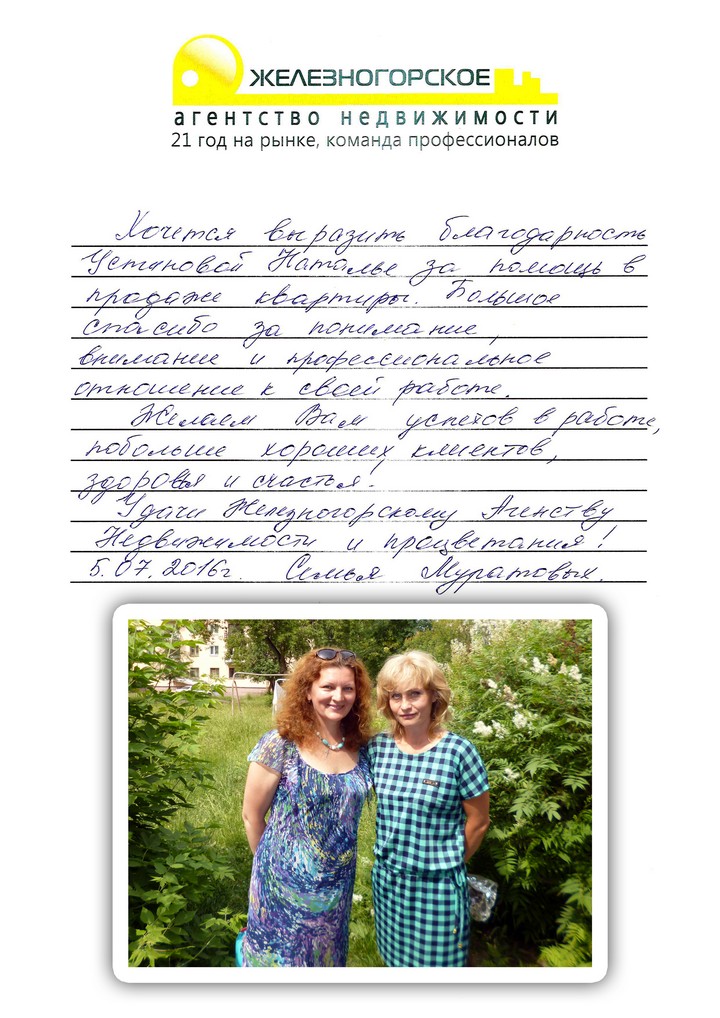 ЖЕЛЕЗНОГОРСКОЕ
агентство недвижимости
21 год на рынке, команда профессионалов
Хочется выразить благодарность
Устиновой Наталье за помощь в
продаже квартиры. Большое
спасибо за понимание,
внимание и профессиональное
отношение к своей работе.
Желаем Вам успехов в работе,
побольше хороших клиентов,
здоровья и счастья!
Удачи Железногорскому Агенству
Недвижимости и процветания!
5.07.2016г. Семья Муратовых.